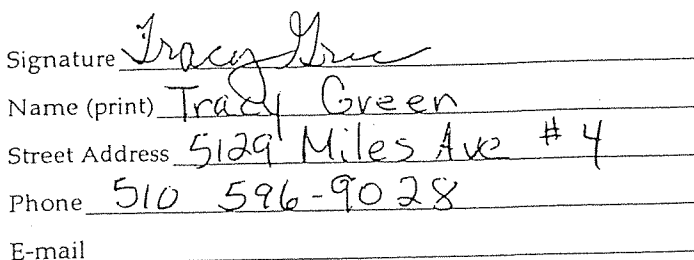 Signature Tracy Gree
Name (print) Tracy Green
Street Address 5129 Miles Ave # 4
Phone 510 596-9028
E-mail